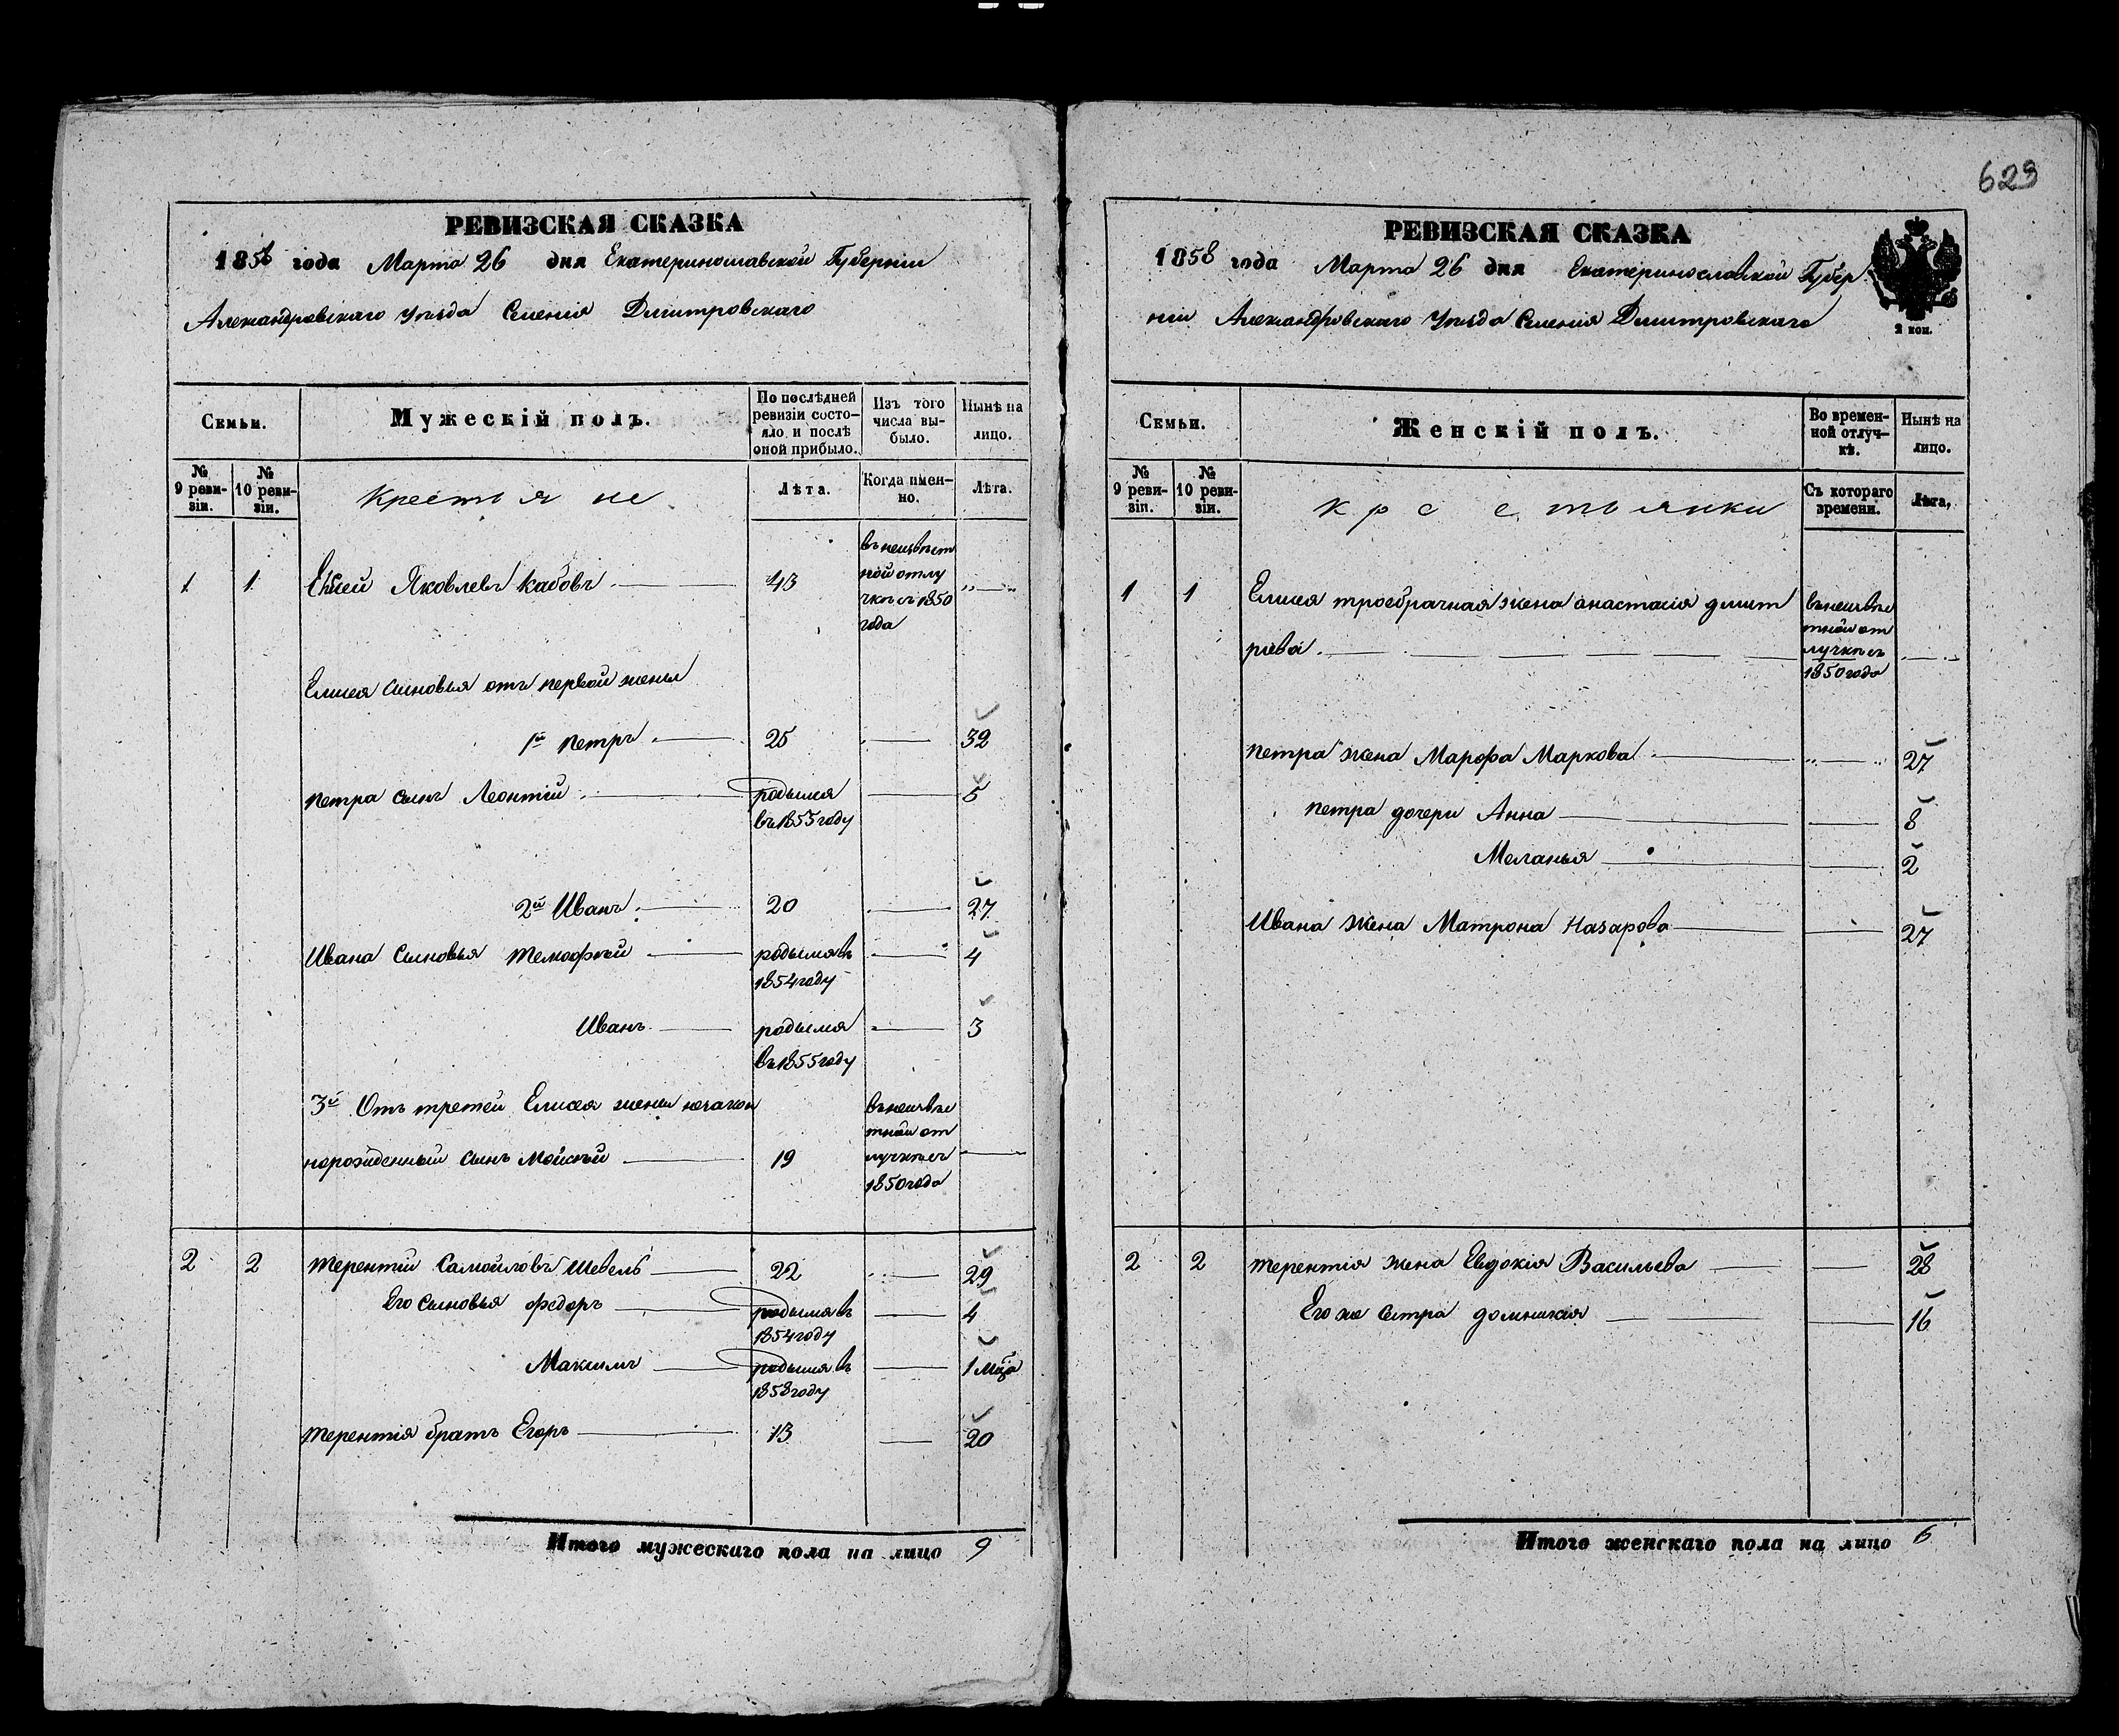 629
РЕВИЗСКАЯ СКАЗКА
1858 года Марта 26 дня Екатеринославской Губерніи
Александровскаго Уѣзда Имения Дмитровскаго
Семьи.
Мужескій полъ.
По послѣдней ревизіи состояло и послѣ оной прибыло.
Изъ того числа выбыло.
Нынѣ на лицо.
№ 9 ревизіи.
№ 10 ревизіи.
Крестьяне
Лѣта.
Когда именно.
Лѣта.
1 1 Елисей Яковлевъ Кабовъ 43 въ неизвѣстной отлучкѣ съ 1850 года
Елисея сыновья отъ первой жены
1й петръ 25 32
петра сынъ Леонтій родился въ 1853 году 5
2й Иванъ 20 27
Ивана сыновья Тимофѣй родился въ 1854 году 4
Иванъ родился въ 1855 году 3
3й Отъ третей Елисея жены незакон
норожденный сынъ Мойсѣй 19 въ неизвѣстной отлучкѣ съ 1850 года
2 2 Терентій Самойловъ Шевель 22 29
Его сыновья федоръ родился въ 1854 году 4
Максимъ родился въ 1858 году 1 мѣца
Терентія братъ Егоръ 13 20
Итого мужескаго пола на лицо 9
РЕВИЗСКАЯ СКАЗКА
1858 года Марта 26 дня Екатеринославской Губер
ніи Александровскаго Уѣзда Имения Дмитровскаго
2 коп.
Семьи.
Женскій полъ.
Во временной отлучкѣ.
Нынѣ на лицо.
№ 9 ревизіи.
№ 10 ревизіи.
крестьянки
Съ котораго времени.
Лѣта,
1 1 Елисея троебрачная жена анастасія дмит
рева въ неизвѣстной отлучкѣ съ 1850 года
петра жена Марфа Маркова 27
петра дочери Анна 8
Меланья 2
Ивана жена Матрона Назарова 27
2 2 Терентія жена Евдокія Васильева 28
Его же сестра домникія 16
Итого женскаго пола на лицо 6